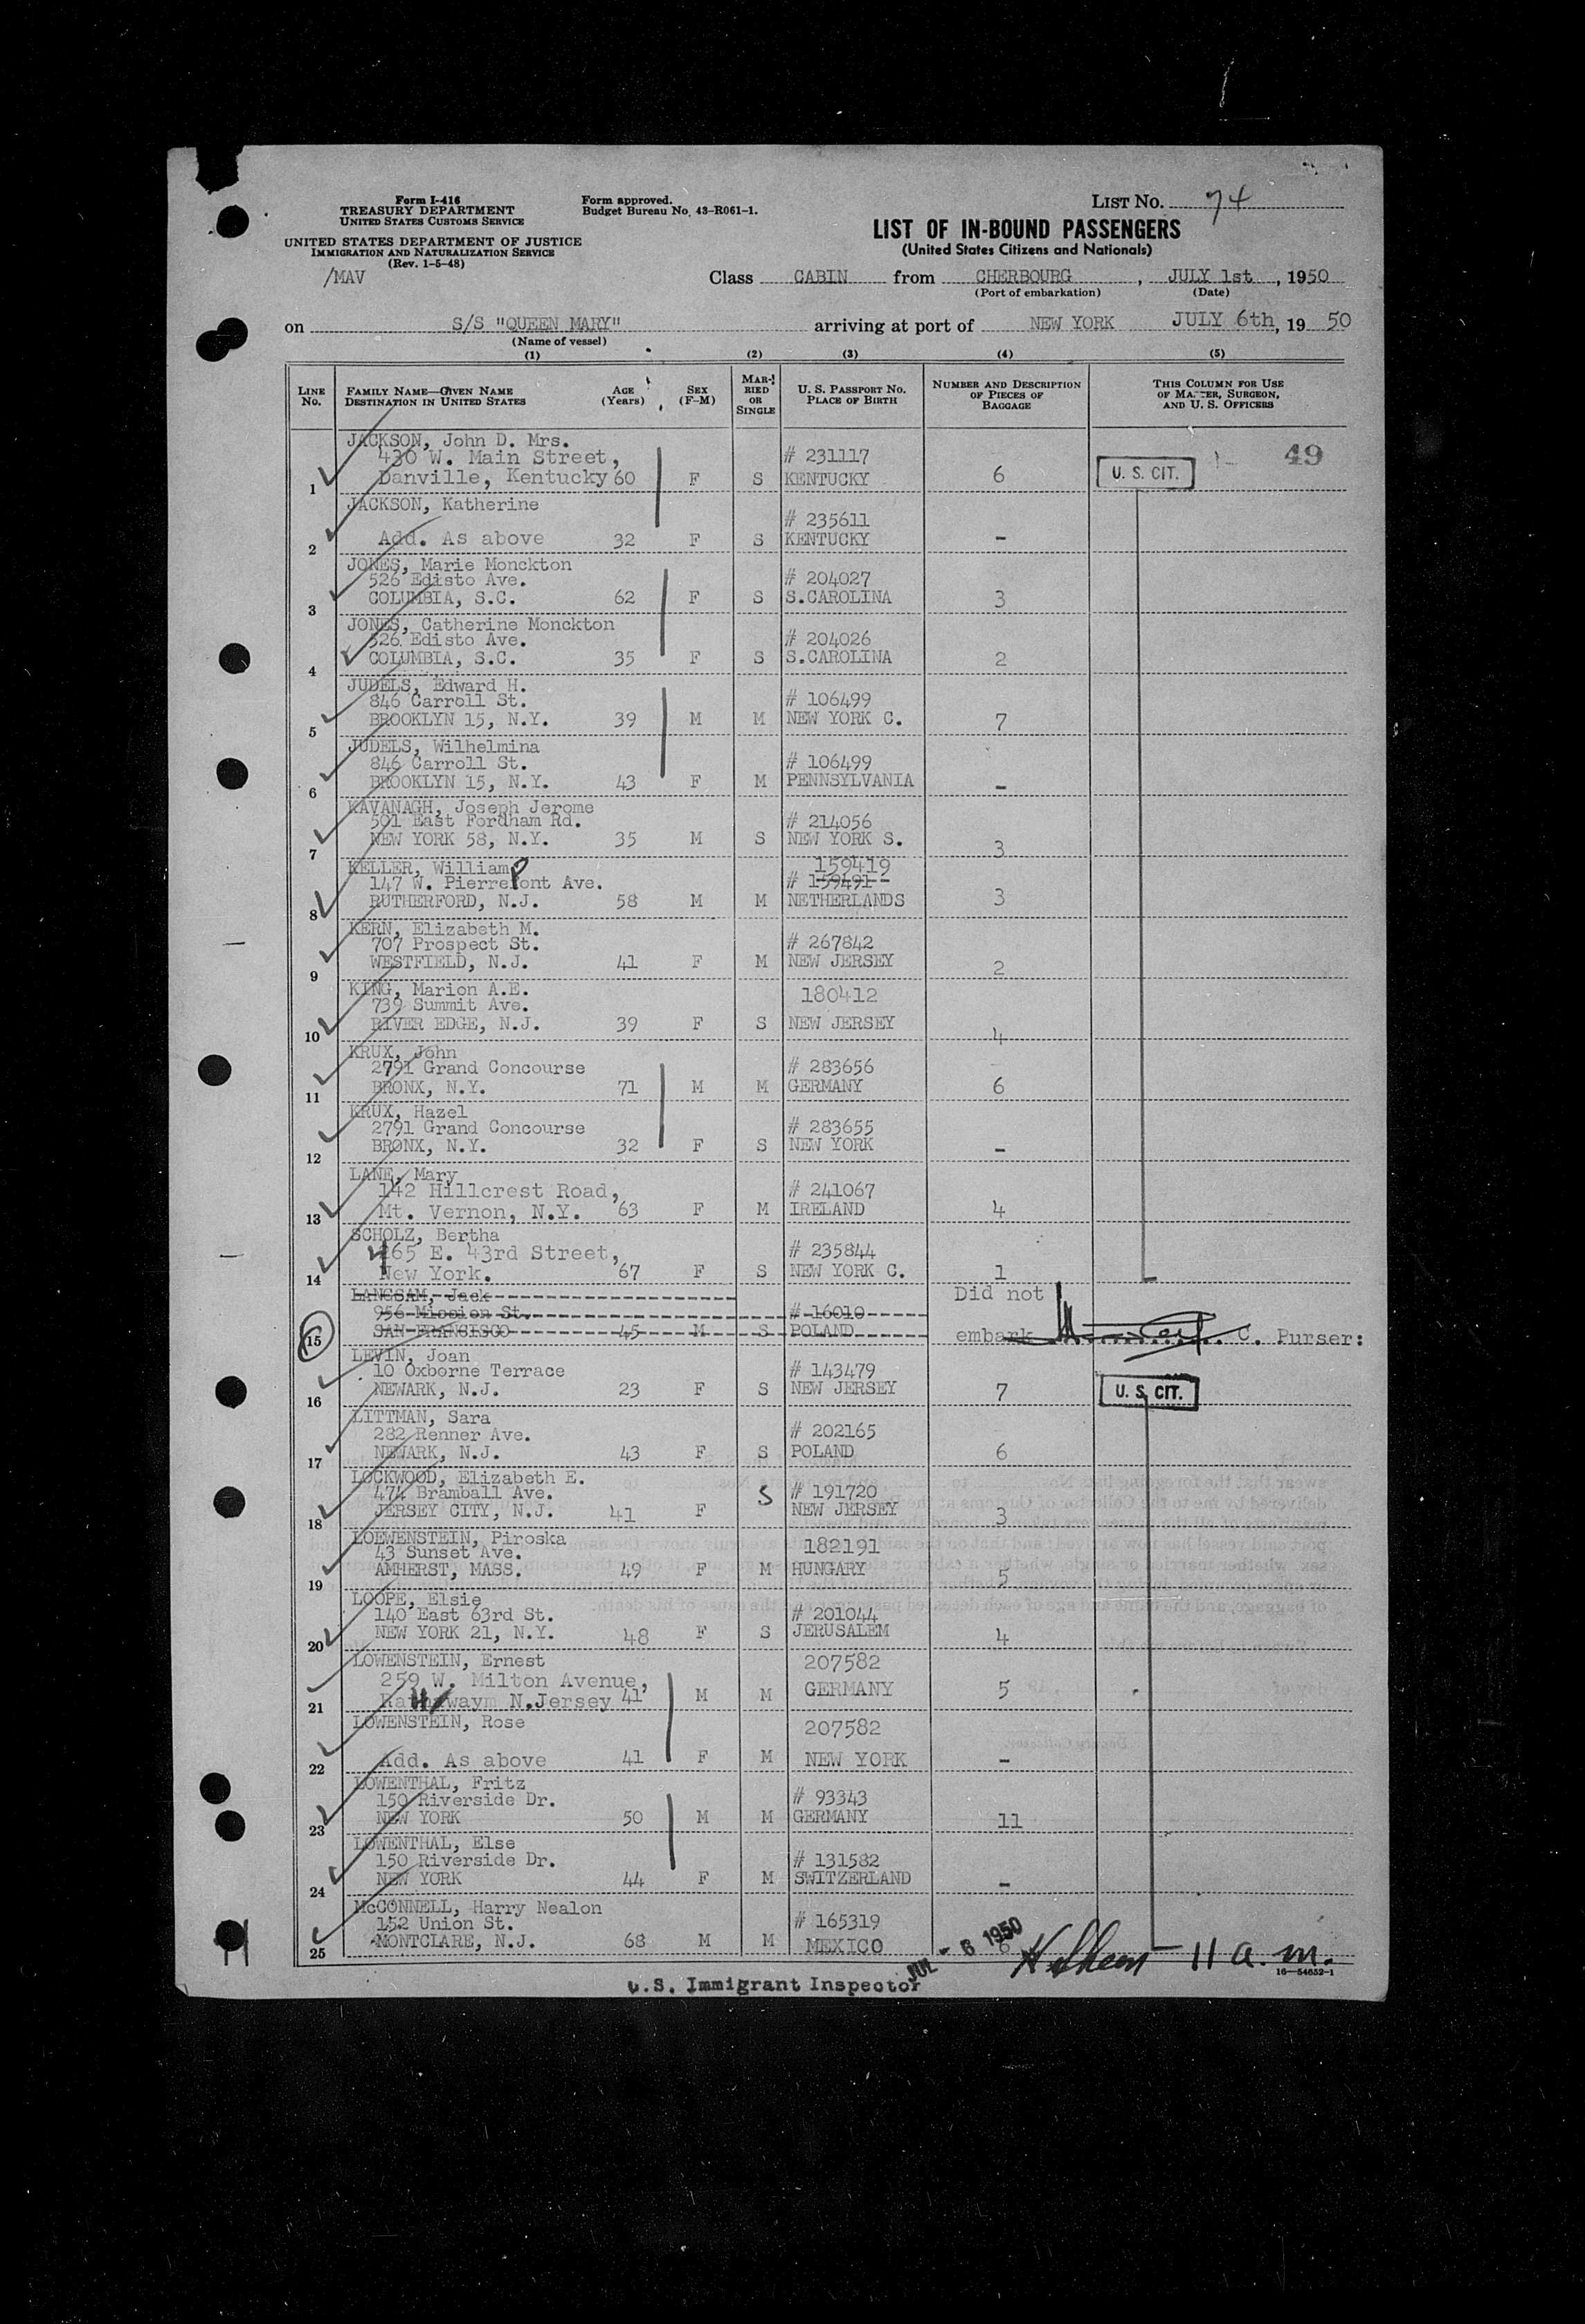 Form I-416
TREASURY DEPARTMENT
UNITED STATES CUSTOMS SERVICE
UNITED STATES DEPARTMENT OF JUSTICE
IMMIGRATION AND NATURALIZATION SERVICE
(Rev. 1-5-48)
/MAV
Form approved.
Budget Bureau No. 43-R061-1.
LIST NO. 74
LIST OF IN-BOUND PASSENGERS
(United States Citizens and Nationals)
Class CABIN from CHERBOURG, JULY 1st, 1950
(Port of embarkation) (Date)
on S/S "QUEEN MARY" arriving at port of NEW YORK JULY 6th, 19 50
(Name of vessel)
(1) (2) (3) (4) (5)
LINE No. FAMILY NAME—GIVEN NAME DESTINATION IN UNITED STATES AGE (Years) SEX (F-M) MARRIED OR SINGLE U. S. PASSPORT No. PLACE OF BIRTH NUMBER AND DESCRIPTION OF PIECES OF BAGGAGE THIS COLUMN FOR USE OF MASTER, SURGEON, AND U. S. OFFICERS
JACKSON, John D. Mrs.
430 W. Main Street, # 231117 49
1 Danville, Kentucky 60 F S KENTUCKY 6 U. S. CIT.
JACKSON, Katherine
# 235611
2 Add. As above 32 F S KENTUCKY -
JONES, Marie Monckton
526 Edisto Ave. # 204027
3 COLUMBIA, S.C. 62 F S S.CAROLINA 3
JONES, Catherine Monckton
526 Edisto Ave. # 204026
4 COLUMBIA, S.C. 35 F S S.CAROLINA 2
JUDELS, Edward H.
846 Carroll St. # 106499
5 BROOKLYN 15, N.Y. 39 M M NEW YORK C. 7
JUDELS, Wilhelmina
846 Carroll St. # 106499
6 BROOKLYN 15, N.Y. 43 F M PENNSYLVANIA -
KAVANAGH, Joseph Jerome
501 East Fordham Rd. # 214056
7 NEW YORK 58, N.Y. 35 M S NEW YORK S. 3
KELLER, William 159419
147 W. Pierrepont Ave. # 159491
8 RUTHERFORD, N.J. 58 M M NETHERLANDS 3
KERN, Elizabeth M.
707 Prospect St. # 267842
9 WESTFIELD, N.J. 41 F M NEW JERSEY 2
KING, Marion A.E. 180412
739 Summit Ave.
10 RIVER EDGE, N.J. 39 F S NEW JERSEY 4
KRUX, John
2791 Grand Concourse # 283656
11 BRONX, N.Y. 71 M M GERMANY 6
KRUX, Hazel
2791 Grand Concourse # 283655
12 BRONX, N.Y. 32 F S NEW YORK -
LANE, Mary
142 Hillcrest Road, # 241067
13 Mt. Vernon, N.Y. 63 F M IRELAND 4
SCHOLZ, Bertha
465 E. 43rd Street, # 235844
14 New York. 67 F S NEW YORK C. 1
LANGSAM, Jack Did not
956 Mission St. # 16010
15 SAN FRANCISCO 45 M S POLAND embark C. Purser:
LEVIN, Joan
10 Oxborne Terrace # 143479
16 NEWARK, N.J. 23 F S NEW JERSEY 7 U. S. CIT.
LITTMAN, Sara
282 Renner Ave. # 202165
17 NEWARK, N.J. 43 F S POLAND 6
LOCKWOOD, Elizabeth E.
474 Bramball Ave. S # 191720
18 JERSEY CITY, N.J. 41 F NEW JERSEY 3
LOEWENSTEIN, Piroska 182191
43 Sunset Ave.
19 AMHERST, MASS. 49 F M HUNGARY 5
LOOPE, Elsie
140 East 63rd St. # 201044
20 NEW YORK 21, N.Y. 48 F S JERUSALEM 4
LOWENSTEIN, Ernest 207582
259 W. Milton Avenue,
21 N.Jersey 41 M M GERMANY 5
LOWENSTEIN, Rose 207582
22 Add. As above 41 F M NEW YORK -
LOWENTHAL, Fritz
150 Riverside Dr. # 93343
23 NEW YORK 50 M M GERMANY 11
LOWENTHAL, Else
150 Riverside Dr. # 131582
24 NEW YORK 44 F M SWITZERLAND -
McCONNELL, Harry Nealon
152 Union St. # 165319
25 MONTCLARE, N.J. 68 M M MEXICO 6
JUL - 6 1950 11 a.m.
16-54652-1
U.S. Immigrant Inspector